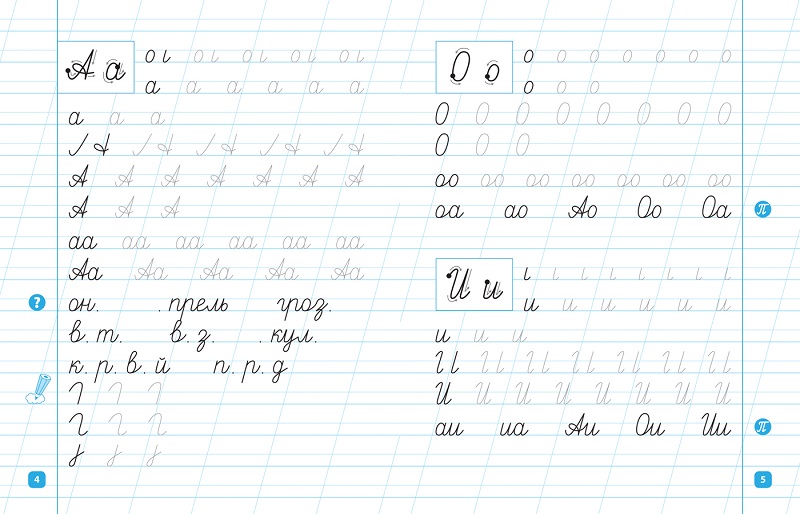 А а
а а а а а а
а а а
А А А А А А А
А А А
аа аа аа аа аа аа
Аа Аа Аа Аа Аа
? он. .прель гроз.
в.т. в.з. .кул.
к.р.в.й п.р.д
4
О о
о о о о о о о о
о о о о
О О О О О О О О
О О О
оо оо оо оо оо оо оо
оа ао Ао Оо Оа П
И и
и и и и и и
и и и
И И И И И И И И
аи иа Аи Ои Ии П
5